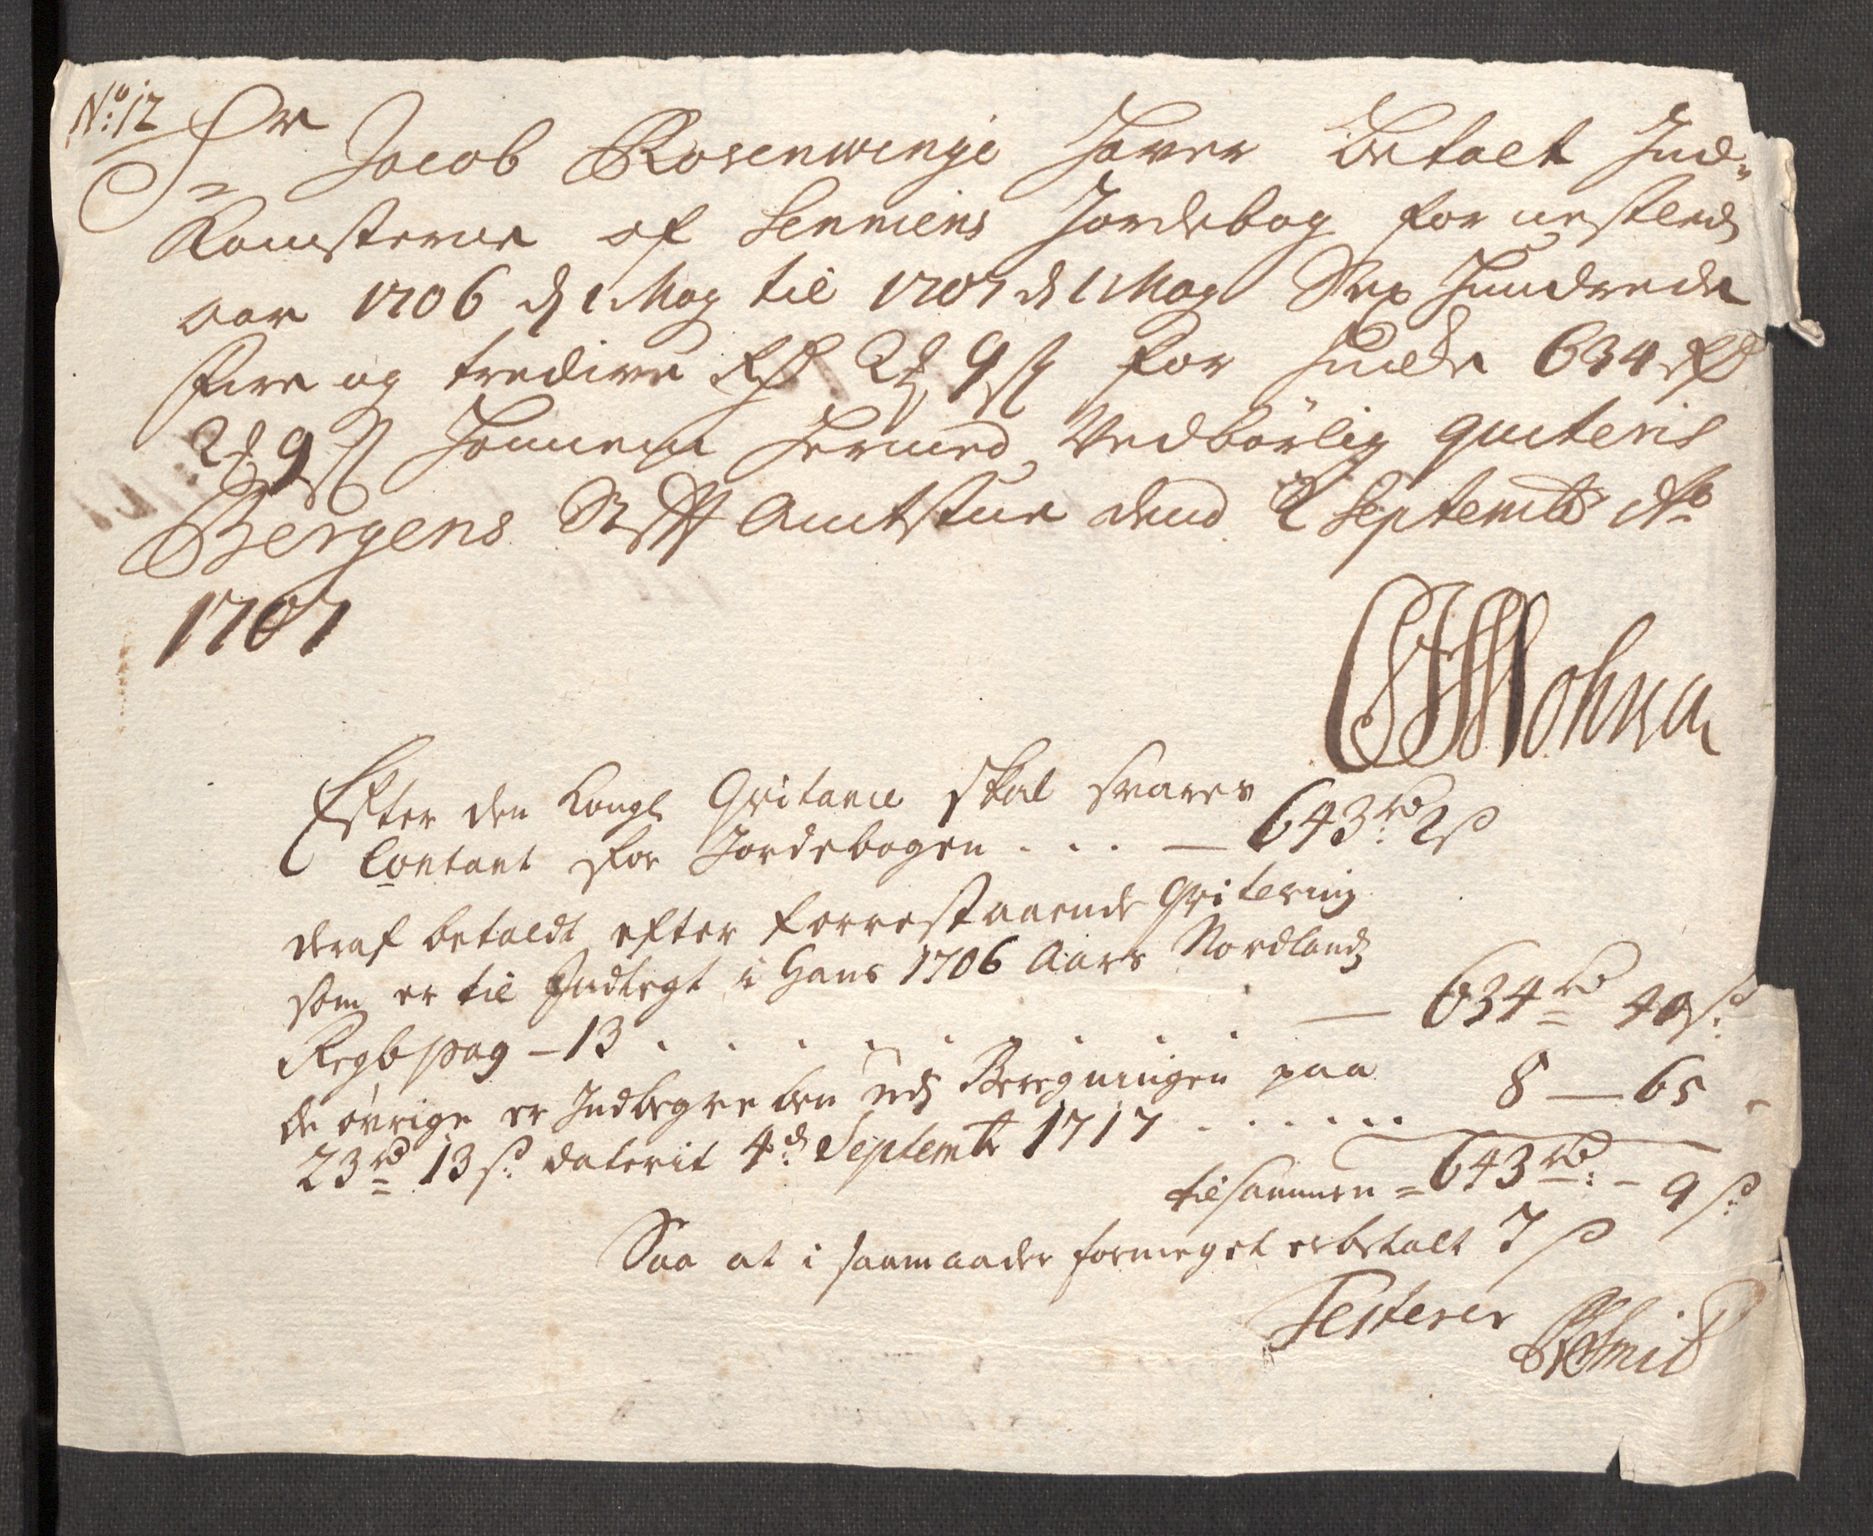 No: 12
Sr Jacob Rosenwinge Haver Betalt Ind-
Komsterne af Senniens Jordebog for nestled
aar 1706 d 1 May til 1707 d 1 May Sex Hundrede
fire og tredive Rd 2 9 s for huilcke 634 Rd
2 9 s Hannem hermed Vedbörlig quiteris
Bergens Stifft Amtstue dend 2 Septembr Ao
1707
Efter den Kongl Qvitance skal svares
Contant for Jordebogen . . . — 643 rd: 2 s
deraf betaldt efter forrestaaende Qvitering
som er til Indlegt i Hans 1706 Aars Nordlands
Regb pag – 13 . . . . . . . — 634 rd 40 s:
de øvrige er Indbegreben udj Beregningen paa
23 rd 13 s: daterit 4 d: Septembr 1717 . . . . . . 8 — 65
tilsammen = 643 rd: – 9 s:
Saa at i saamaader formeget er betalt 7 s
Testerer